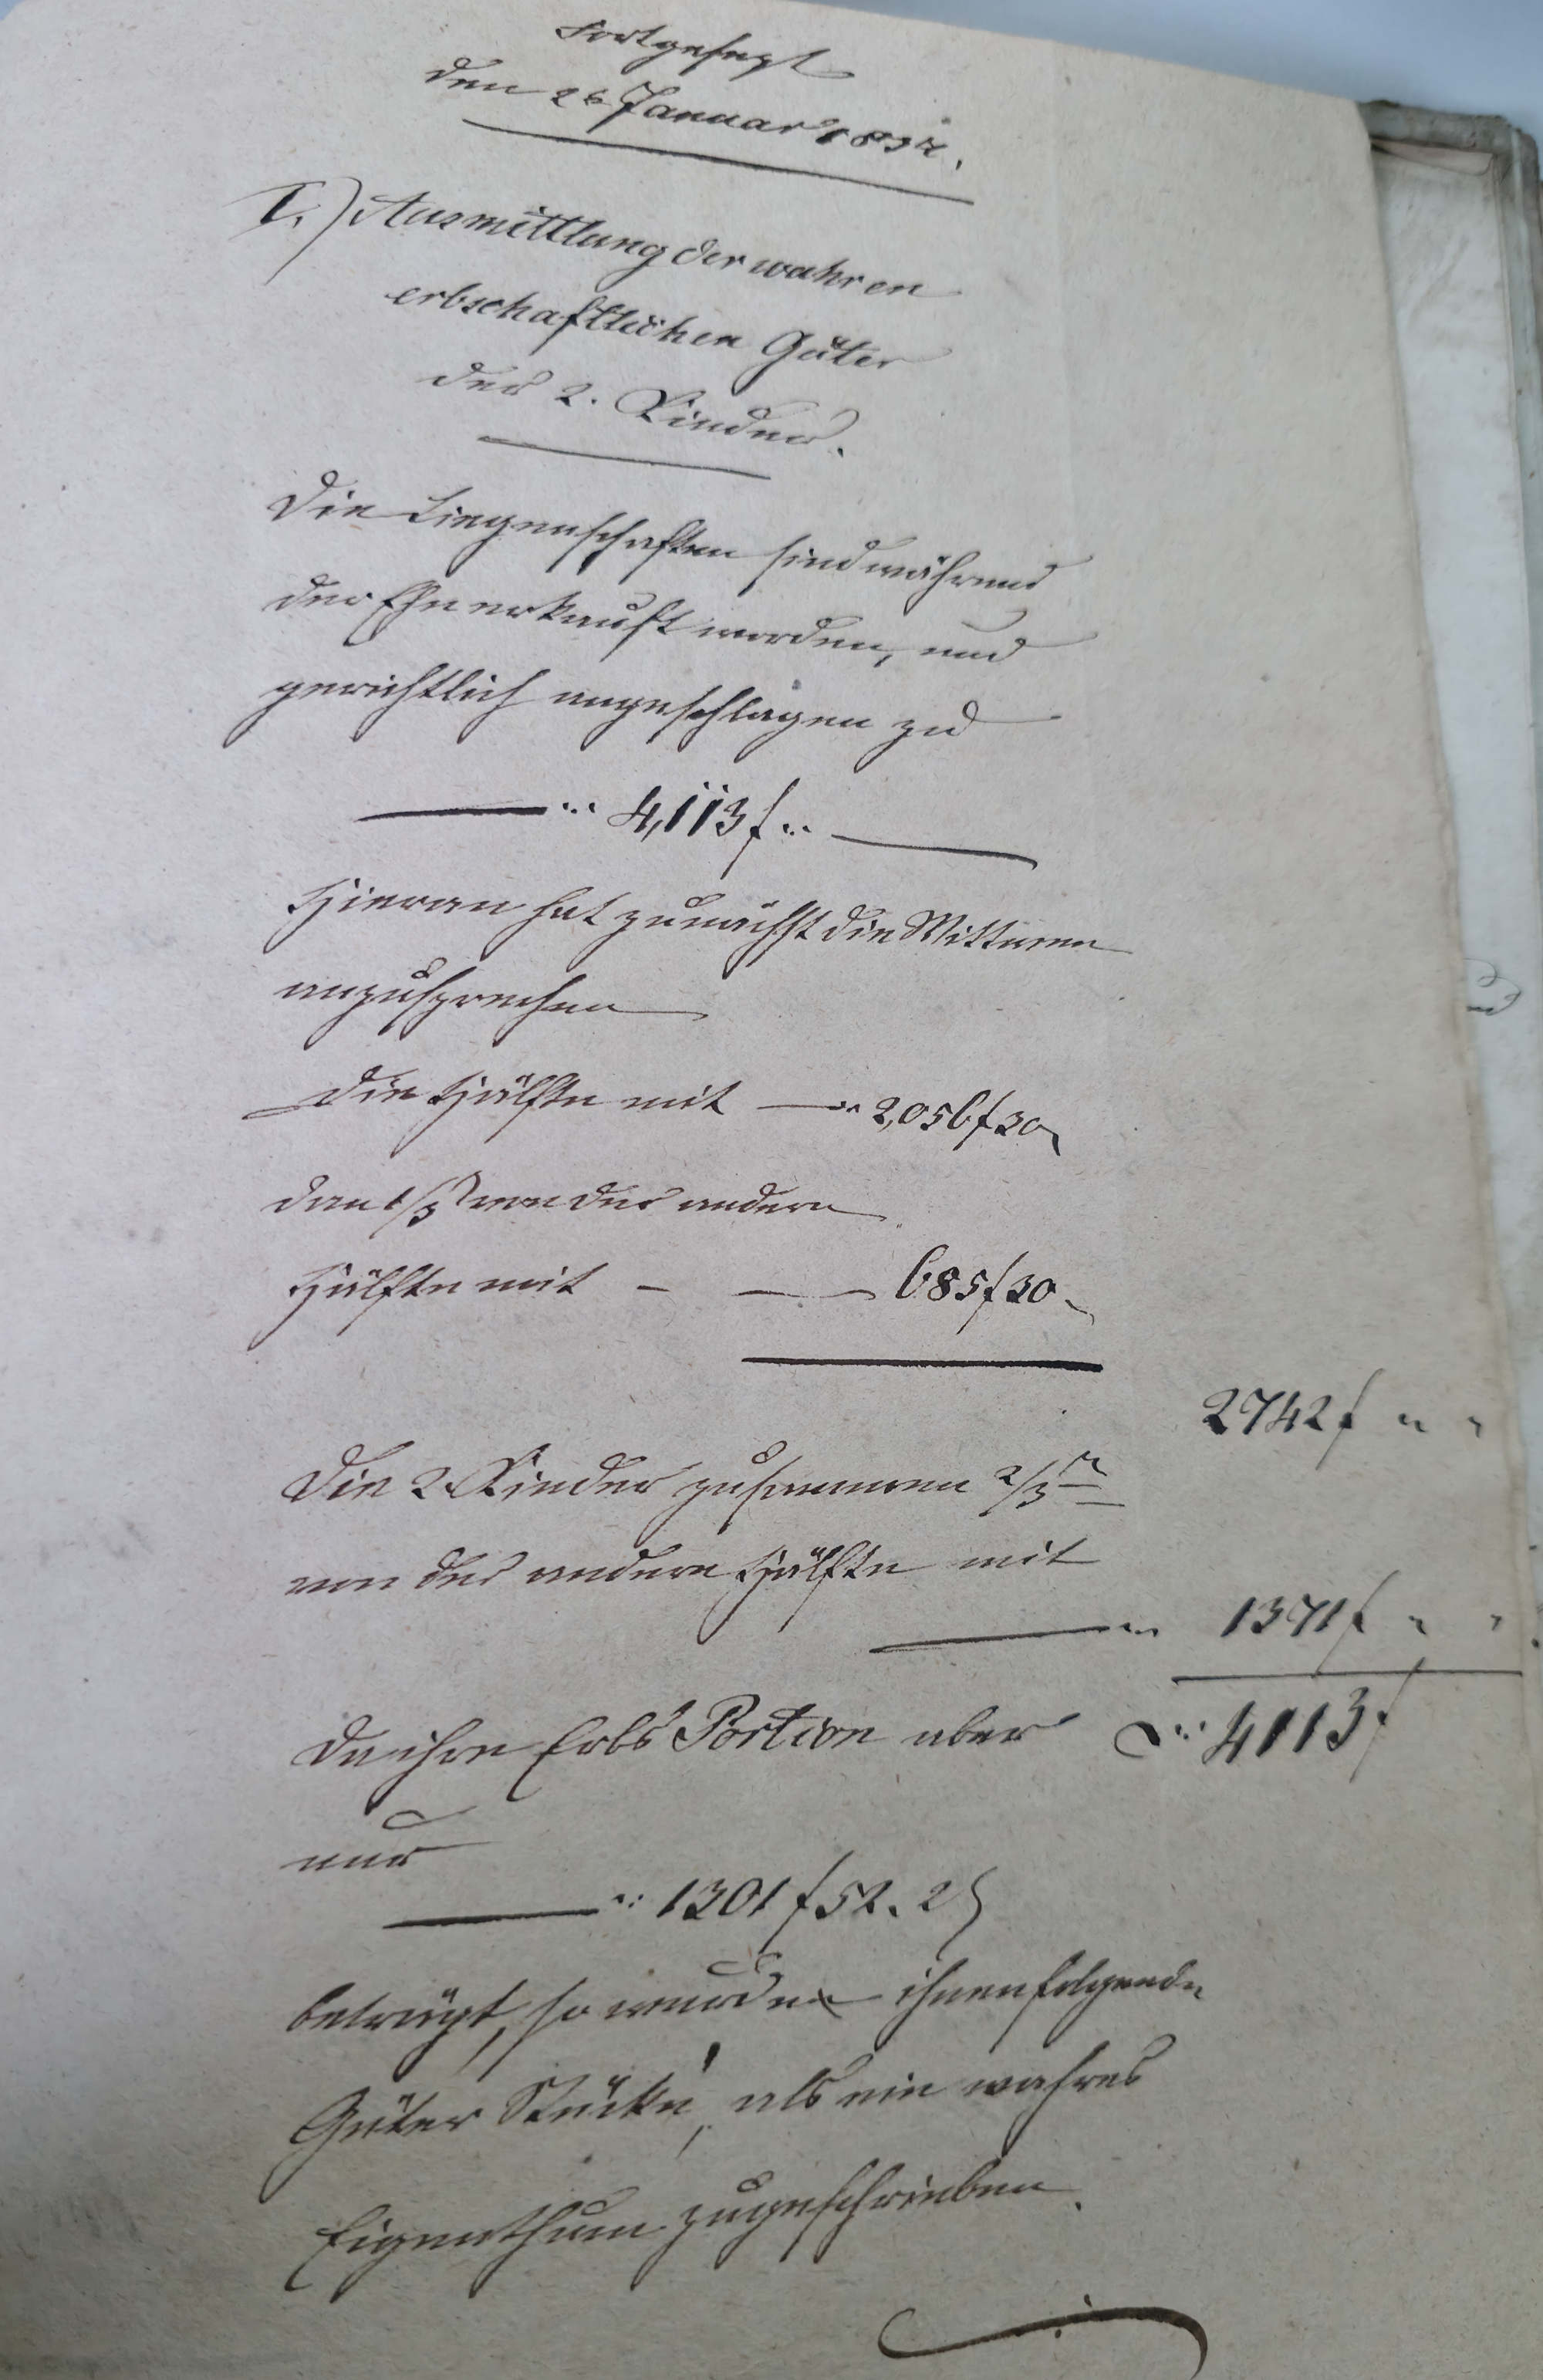 Fortgesezt
den 26 Januar 1832.
I.) Ausmittlung der wahren
erbschaftlichen Güter
der 2. Kinder.
Die Liegenschaften sind während
der Ehe erkauft worden, und
gerichtlich angeschlagen zu
4,113 f
Hieran hat zunächst die Wittwe
anzusprechen
die Hälfte mit 2,056 f 30
dan 1/3 von der andern
Hälfte mit - 685 f 30
2742 f " "
Die 2 Kinder zusammen 2/3
von der andern Hälfte mit
1371 f " "
Da ihre Erbs Portion aber 4113 f
nur
1301 f 52. 2
beträgt, so wurden ihnen folgende
Güter Stücke, als ein wahres
Eigenthum zugeschrieben.